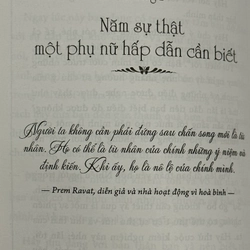 Năm sự thật
một phụ nữ hấp dẫn cần biết
Người ta không cần phải đứng sau chấn song mới là tù
nhân. Họ có thể là tù nhân của chính những ý niệm và
định kiến. Khi ấy, họ là nô lệ của chính mình.
— Prem Ravat, diễn giả và nhà hoạt động vì hoà bình —